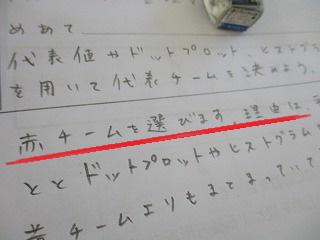 めあて
代表値やドットプロット、ヒストグラ
を用いて代表チームを決めよう。
赤チームを選びます。理由は、
とと ドットプロットやヒストグラム
チームよりもまとまっていて